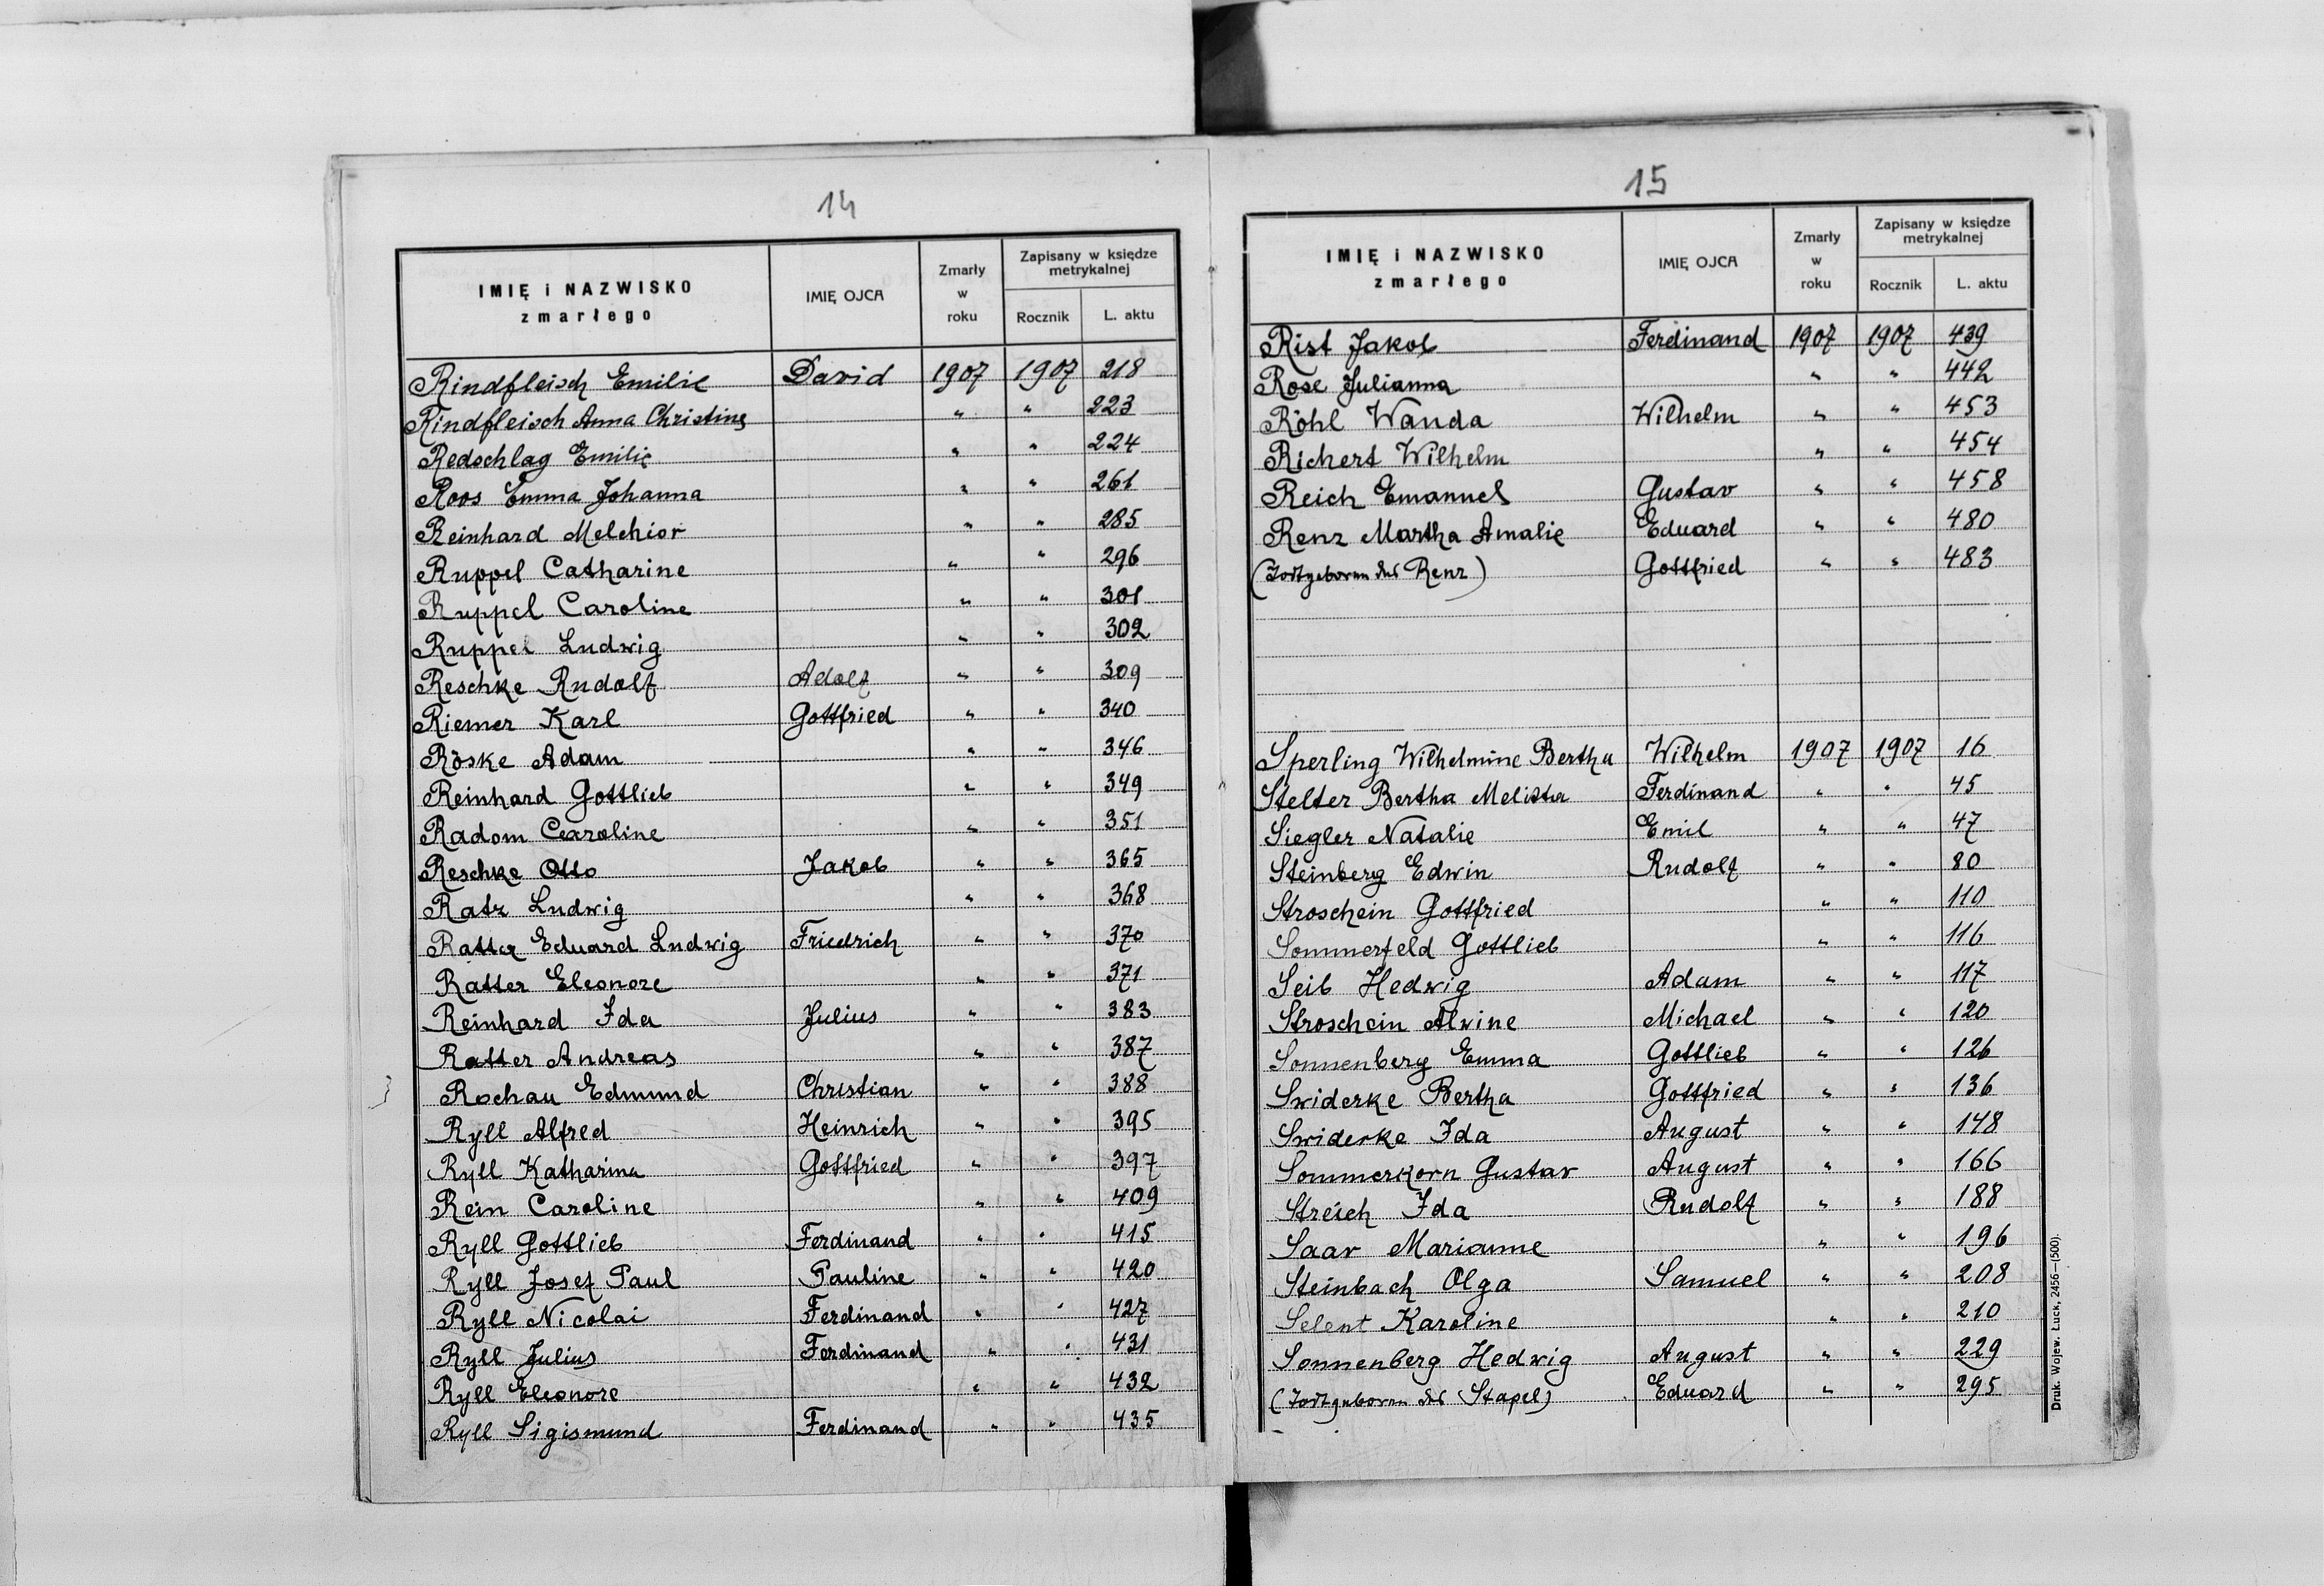 14
IMIĘ i NAZWISKO zmarłego | IMIĘ OJCA | Zmarły w roku | Zapisany w księdze metrykalnej
Rocznik | L. aktu
Rindfleisch Emilie | David | 1907 | 1907 | 218
Rindfleisch Anna Christine | | " | " | 223
Redschlag Emilie | | " | " | 224
Roos Emma Johanna | | " | " | 261
Reinhard Melchior | | " | " | 285
Ruppel Catharine | | " | " | 296
Ruppel Caroline | | " | " | 301
Ruppel Ludwig | | " | " | 302
Reschke Rudolf | Adolf | " | " | 309
Riemer Karl | Gottfried | " | " | 340
Röske Adam | | " | " | 346
Reinhard Gottlieb | | " | " | 349
Radom Caroline | | " | " | 351
Reschke Otto | Jakob | " | " | 365
Ratz Ludwig | | " | " | 368
Ratter Eduard Ludwig | Friedrich | " | " | 370
Ratter Eleonore | | " | " | 371
Reinhard Ida | Julius | " | " | 383
Ratter Andreas | | " | " | 387
Rochau Edmund | Christian | " | " | 388
Ryll Alfred | Heinrich | " | " | 395
Ryll Katharina | Gottfried | " | " | 397
Rein Caroline | | " | " | 409
Ryll Gottlieb | Ferdinand | " | " | 415
Ryll Josef Paul | Pauline | " | " | 420
Ryll Nicolai | Ferdinand | " | " | 427
Ryll Julius | Ferdinand | " | " | 431
Ryll Eleonore | | " | " | 432
Ryll Sigismund | Ferdinand | " | " | 435
15
IMIĘ i NAZWISKO zmarłego | IMIĘ OJCA | Zmarły w roku | Zapisany w księdze metrykalnej
Rocznik | L. aktu
Rist Jakob | Ferdinand | 1907 | 1907 | 439
Rose Julianna | | " | " | 442
Röhl Wanda | Wilhelm | " | " | 453
Richert Wilhelm | | " | " | 454
Reich Emanuel | Gustav | " | " | 458
Renz Martha Amalie | Eduard | " | " | 480
(Todtgeboren des Renz) | Gottfried | " | " | 483
Sperling Wilhelmine Bertha | Wilhelm | 1907 | 1907 | 16
Stelter Bertha | Ferdinand | " | " | 45
Siegler Natalie | Emil | " | " | 47
Steinberg Edwin | Rudolf | " | " | 80
Stroschein Gottfried | | " | " | 110
Sommerfeld Gottlieb | | " | " | 116
Seib Hedwig | Adam | " | " | 117
Stroschein Alwine | Michael | " | " | 120
Sonnenberg Emma | Gottlieb | " | " | 126
Swiderke Bertha | Gottfried | " | " | 136
Swiderke Ida | August | " | " | 148
Sommerkorn Gustav | August | " | " | 166
Streich Ida | Rudolf | " | " | 188
Saar Marianne | | " | " | 196
Steinbach Olga | Samuel | " | " | 208
Selent Karoline | | " | " | 210
Sonnenberg Hedwig | August | " | " | 229
(Todtgeboren des Stapel) | Eduard | " | " | 295
Druk. Wojew. Łuck, 2456—(500).